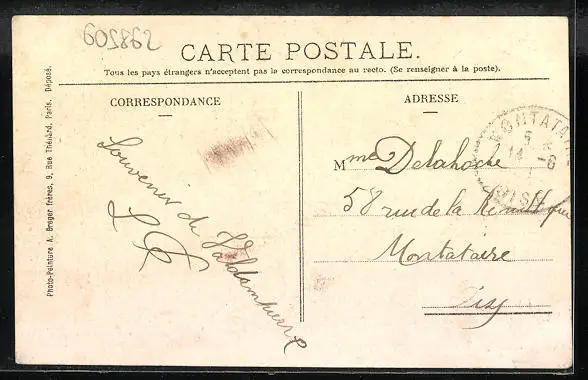 605862
CARTE POSTALE.
Tous les pays étrangers n'acceptent pas la correspondance au recto. (Se renseigner à la poste).
CORRESPONDANCE
Souvenir de Valdampierre
ADRESSE
Mme Delahoche
58 rue de la République
Montataire
Oise
MONTATAIRE
5 *
14 -6
OISE
Photo-Peinture A. Breger frères, 9, Rue Thénard, Paris. Déposé.